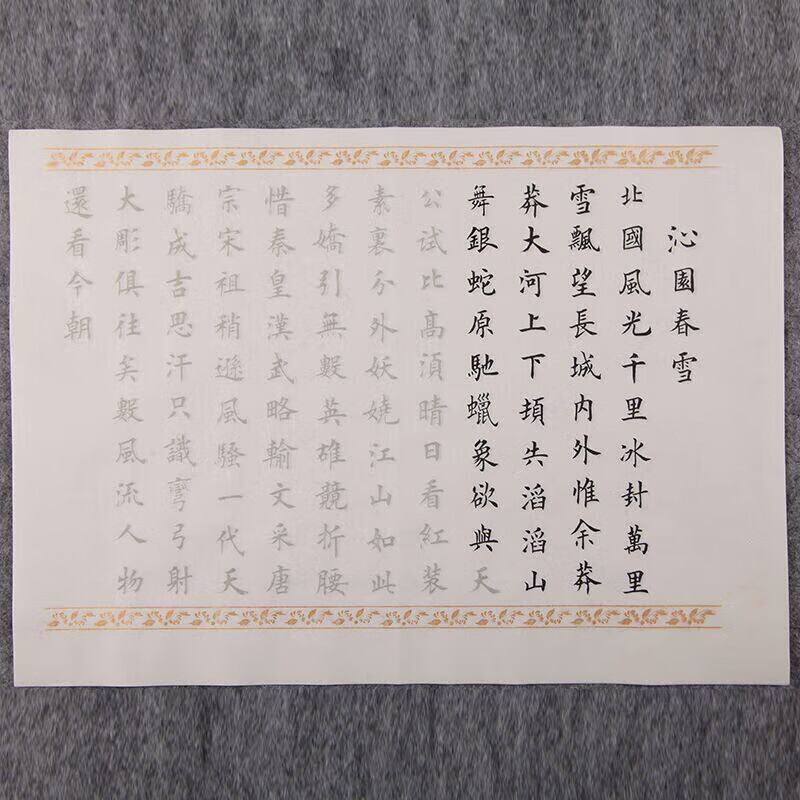 沁園春雪
北國風光千里冰封萬里
雪飄望長城内外惟余莽
莽大河上下頓失滔滔山
舞銀蛇原馳蠟象欲與天
公試比髙須晴日看紅装
素裹分外妖嬈江山如此
多嬌引無數英雄競折腰
惜秦皇漢武略輸文采唐
宗宋祖稍遜風騷一代天
驕成吉思汗只識彎弓射
大彫俱往矣數風流人物
還看今朝